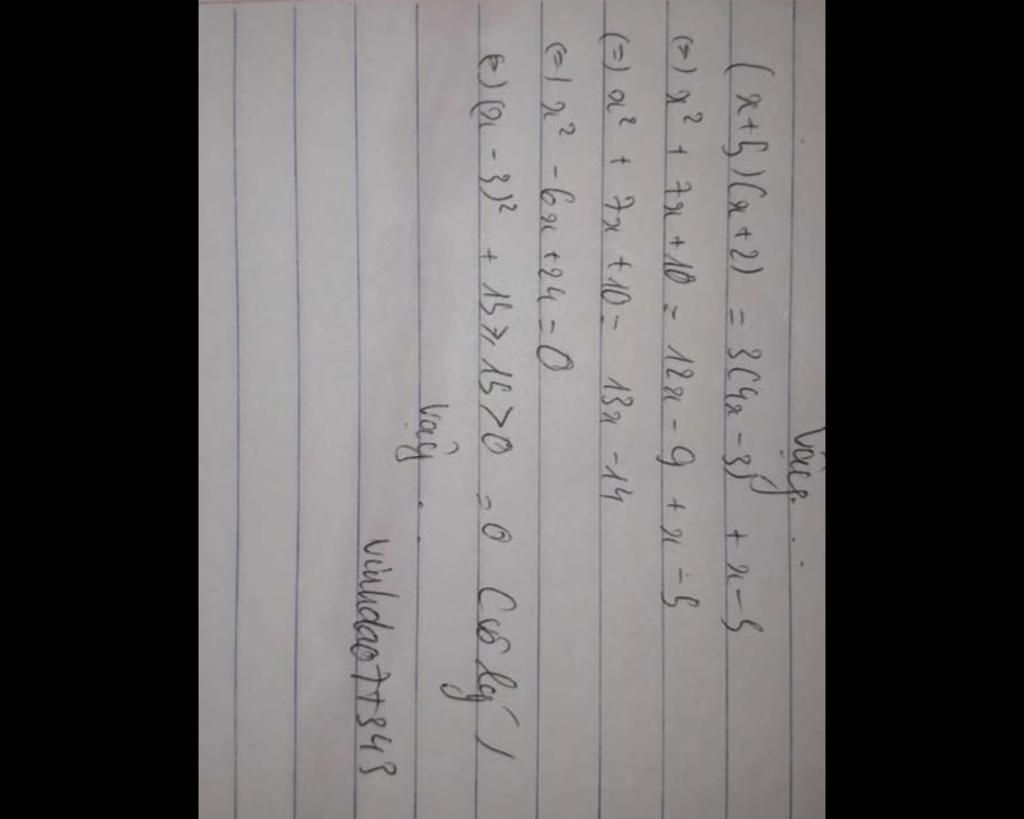 Vậy . .
(x+5)(x+2) = 3(4x-3) + x-5
(=) x² + 7x+10 = 12x - 9 + x - 5
(=) x² + 7x +10 = 13x -14
(=) x² - 6x +24 = 0
(=) (x - 3)² + 15 ≥ 15 > 0 = 0 (vô lý)
Vậy . .
vinhdao7+343